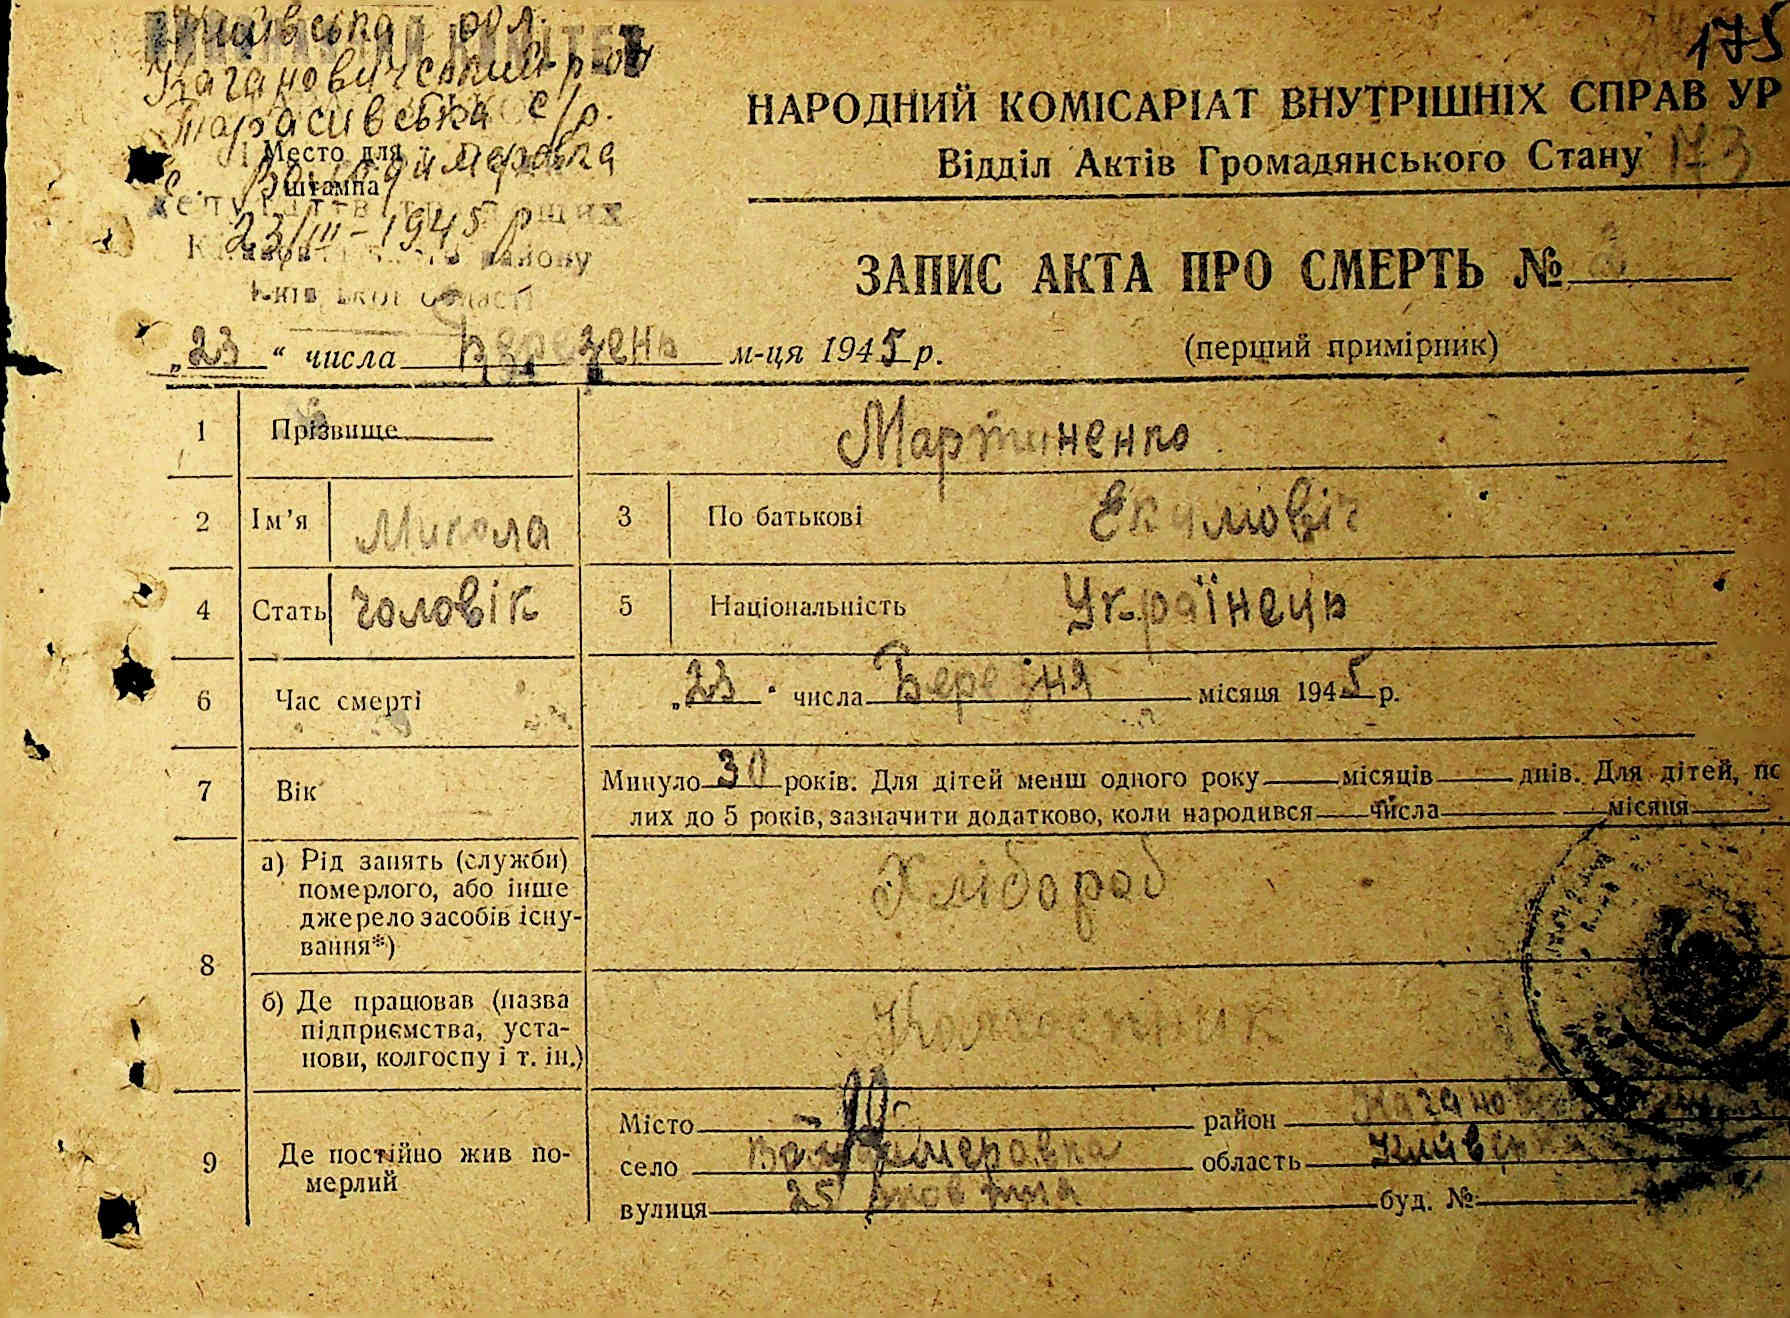 Київська обл.
Кагановичський р-он
Тарасивська с/р.
Место для
штампа
с. Володимеровка
23/III-1945 р
Київської області
175
НАРОДНИЙ КОМІСАРІАТ ВНУТРІШНІХ СПРАВ УР
Відділ Актів Громадянського Стану
173
ЗАПИС АКТА ПРО СМЕРТЬ №
„23“ числа Березень м-ця 1945 р.
(перший примірник)
1 Прізвище Мартиненко
2 Ім’я Микола 3 По батькові Екимовіч
4 Стать чоловік 5 Національність Українець
6 Час смерті „23“ числа Березня місяця 1945 р.
7 Вік Минуло 30 років. Для дітей менш одного року місяців днів. Для дітей, по
лих до 5 років, зазначити додатково, коли народився числа місяця
8 а) Рід занять (служби)
померлого, або інше
джерело засобів існу-
вання*)
Хлібороб
б) Де працював (назва
підприємства, уста-
нови, колгоспу і т. ін.)
Колгоспник
9 Де постійно жив по-
мерлий
Місто район
село Володимеровка область Київська
вулиця 25 жовтня буд. №